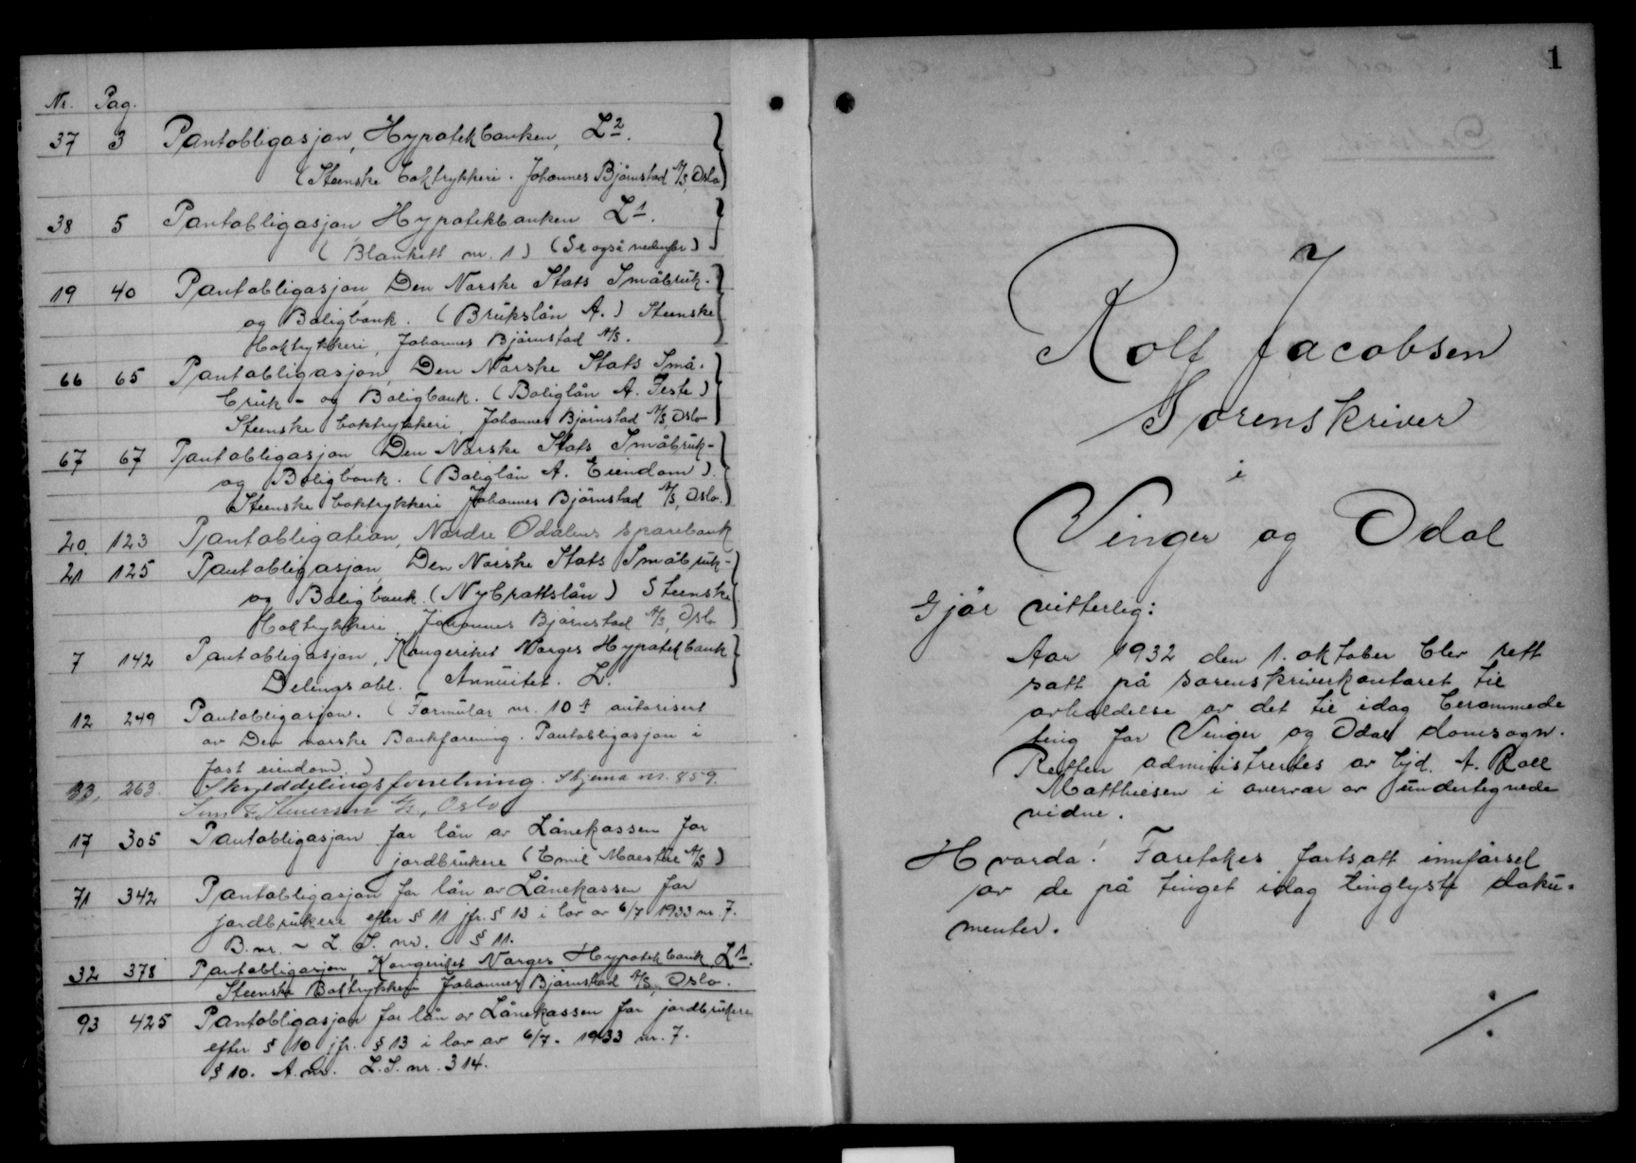 Nr. Pag.
37 3 Pantobligasjon, Hypotekbanken, L2.
(Steenske boktrykkeri. Johannes Bjørnstad A/S, Oslo)
38 5 Pantobligasjon, Hypotekbanken L1.
(Blankett nr. 1) (Se også nedenfor)
19 40 Pantobligasjon, Den Norske Stats Småbruk-
og Boligbank. (Brukslån A.) Steenske
Boktrykkeri, Johannes Bjørnstad A/S.
66 65 Pantobligasjon, Den Norske Stats Små-
bruk- og Boligbank. (Boliglån A. Feste)
Steenske boktrykkeri, Johannes Bjørnstad A/S, Oslo
67 67 Pantobligasjon Den Norske Stats Småbruk-
og Boligbank. (Boliglån A. Eiendom)
Steenske boktrykkeri Johannes Bjørnstad A/S, Oslo.)
20. 123 Pantobligation, Nordre Odalens Sparebank
21 125 Pantobligasjon, Den Norske Stats Småbruk-
og Boligbank. (Nybrottslån) Steenske
Boktrykkeri Johannes Bjørnstad A/S, Oslo
7 142 Pantobligasjon, Kongeriket Norges Hypotekbank
Delingsobl. (Annuitet. L.
12 249 Pantobligasjon. (Formular nr. 10 autorisert
av Den norske Bankforening. Pantobligasjon i
fast eiendom.)
33, 263 Skylddelingsforretning. Skjema nr. 859.
Oslo
17 305 Pantobligasjon for lån av Lånekassen for
jordbrukere (Emil Moestue A/S)
71 342 Pantobligasjon for lån av Lånekassen for
jordbrukere efter § 11 jfr. § 13 i lov av 6/7 1933 nr. 7.
B. nr. ~ L. S. nr. § 11.
32 378 Pantobligasjon, Kongeriket Norges Hypotekbank L1.
Steenske Boktrykkeri Johannes Bjørnstad A/S, Oslo.
93 425 Pantobligasjon for lån av Lånekassen for jordbrukere
efter § 10 jfr. § 13 i lov av 6/7. 1933 nr. 7.
§ 10. A. nr. L. S. nr. 314.
1
Rolf Jacobsen
Sorenskriver
i
Vinger og Odal
Gjør vitterlig:
Aar 1932 den 1. oktober blev rett
satt på sorenskriverkontoret til
avholdelse av det til idag berammede
ting for Vinger og Odal domsogn.
Retten administrertes av bjd. A. Roll
Matthiesen i overvær av undertegnede
vidne.
Hvorda! Foretokes fortsatt innførsel
av de på tinget idag tinglyste doku-
menter.
./.